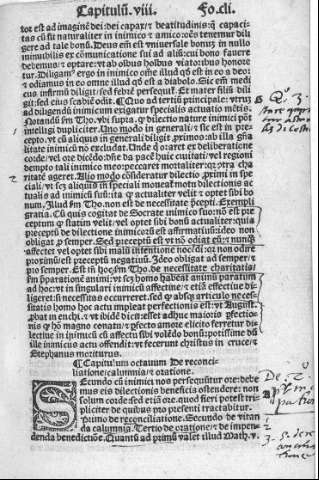 Capitulū. viii. Fo. cli.
tor est ad imaginē dei: dei capax: & beatitudinis: q̄ capaci
tas cū sit naturaliter in inimico & amico: oēs tenemur dili
gere ad tale bonū. Deus em̄ est vniuersale bonuȝ in nullo
ex cōmunicatione sui ad aliū: cui bono fauere
debemus: & optare: vt ab oībus viatoribus obtineatur
Diligam⁹ ergo in inimico oē illud qḋ est in eo a deo:
& odiamus in eo omne illud qḋ est a diabolo. Sic em̄ medi
cus infirmū diligit: sed febrē persequit̄. Et mater filiū dili
git: sed eius odit. Quo ad tertiū principale: vtruȝ
ad diligendū inimicum exigatur specialis actualis mētis.
Notandū fm̄ Tho. vbi supra. q̄ dilectio nature inimici pōt
intelligi dupliciter. Uno modo in generali: & sic est in pre-
cepto. vt cū aliquis in generali diligit proximos: ab illa gñā
litate inimicū nō excludat. Unde q̄ oraret ex deliberatione
vel ore dicēdo: dñe da pacē huic ciuitati vel regioni
tempo tali inimico meo: peccaret mortaliter: qꝛ extra cha
ritatē ageret. Alio modo cōsideratur dilectio proximi in spe
ciali. vt sȝ aliquis in speciali moueat̄ motu dilectionis ac
tualis ad inimicū suū: ita q̄ actualiter velit & optet sibi bo
num. Illud fm̄ Tho. non est de necessitate p̄cepti. Exempli
gratia. Cū quis cogitat de Socrate inimico suo: nō est pre
ceptum q̄ statim velit. vel optet sibi bonū actualiter: quia
preceptū de dilectione inimicorū est affirmatiuū: ideo non
obligat p̄ semper. Sed preceptū est vt nō odiat eū: & nunq̄
affectet vel optet sibi mali intentione nocēdi: & non odire
proximū est preceptū negatiuū. Ideo obligat ad semper: &
pro semper. Est tn̄ hoc fm̄ Tho. de necessitate charitatis
fm̄ p̄parationē animi: vt sȝ homo habeat animū paratum
ad hoc: vt in singulari inimicū affectiue: & etiā effectiue di-
ligeret: si necessitas occurreret. sed q̄ absqȝ articulo neces-
sitatis homo hoc actu impleat perfectionis est: vt August.
pbat in enchi. & vt ibidē dicit: esset adhuc maioris p̄fectio
nis q̄ hō magno conatu: & p̄fecto amore elicito ferretur di-
lectiue in inimicū cū affectu sibi volēdo bonū: potissime dū
ille inimicus actu offendit: vt fecerunt christus in cruce: &
Stephanus moriturus.
Capitulum octauum De reconci
liatione: calumnia: & oratione.
Secundo cū inimici nos persequūtur ore: debe-
mus eis dilectionis beneficia ostendere: non
solum corde sed etiā ore. quod fieri potest tri-
pliciter de quibus pro presenti tractabitur.
primo de reconciliatione. Secundo de vitan
da calumnia. Tertio de oratione: & de impen-
denda benedictiōe. Quantū ad primū valet illud Math. v.